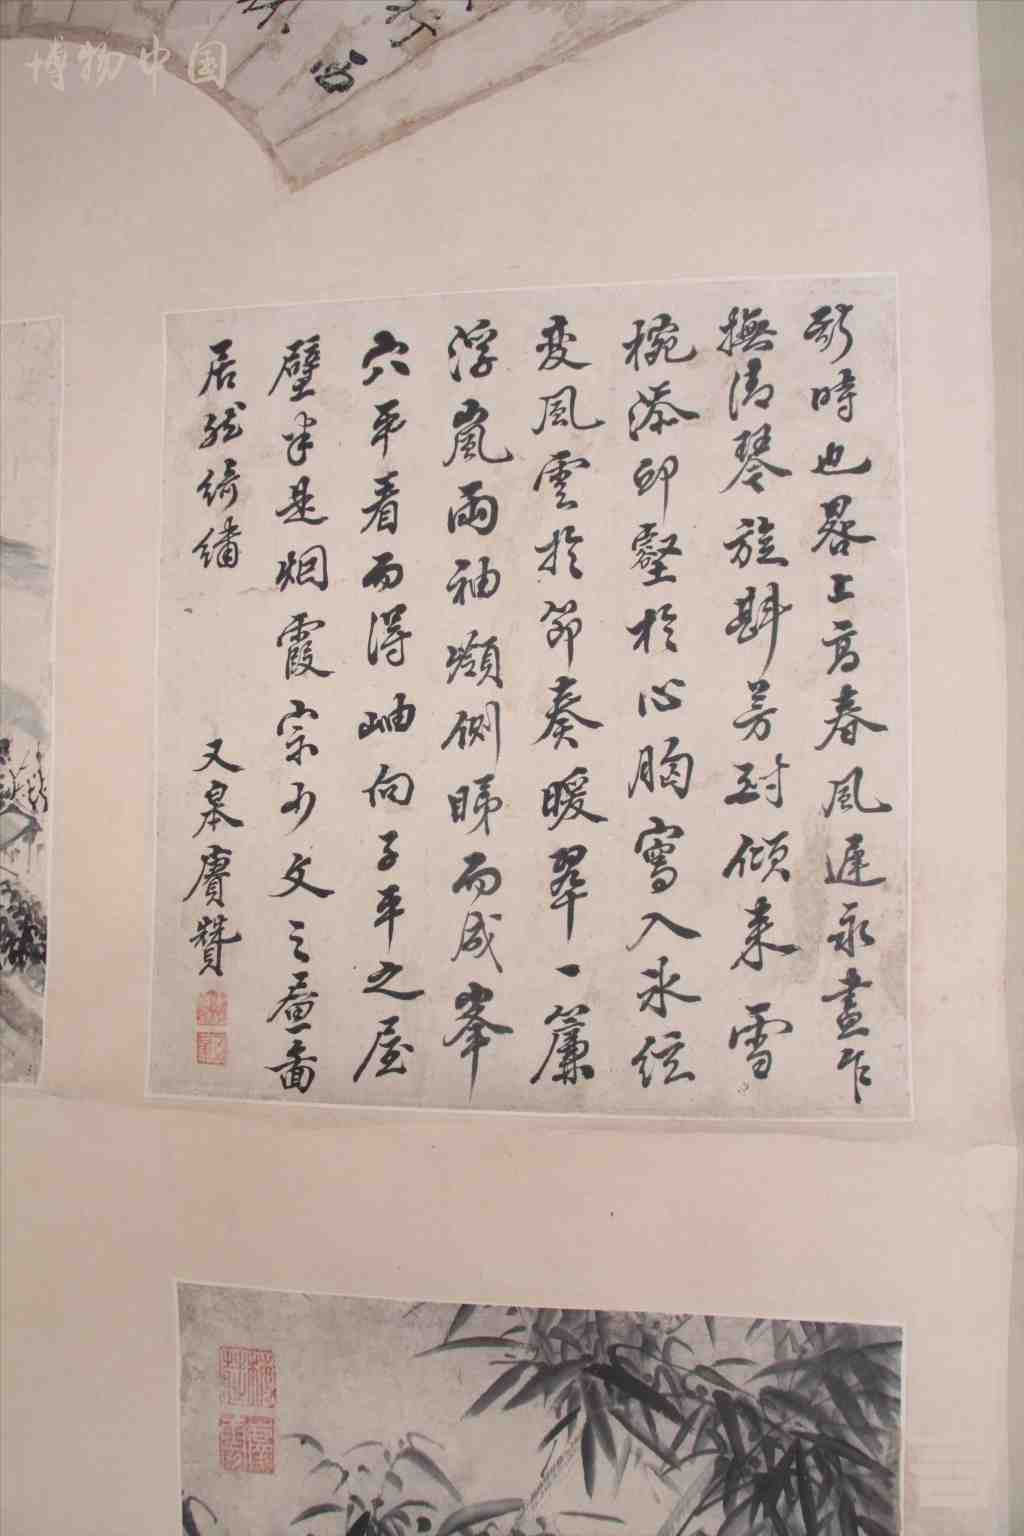 博物中国
斯時也畧上高春風遲永晝乍
撫清琴旋斟芳對傾來雪
椀添邱壑於心胸寫入冰絃
变風雲於節奏暖翠一簾
浮嵐兩袖嬾側睇而成峯
穴平看而得岫向子平之屋
壁半是烟霞宗少文之畫圖
居然綺繡
又皋賡贊